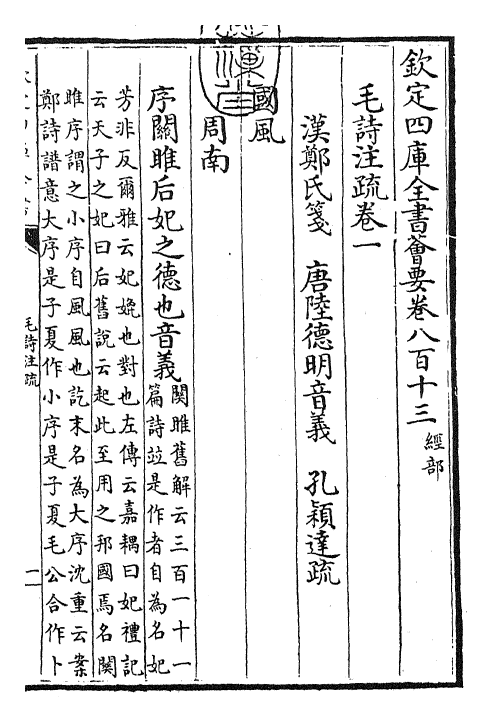 欽定四庫全書薈要卷八百十三 經部
毛詩注疏卷一
漢鄭氏箋 唐陸德明音義 孔穎達疏
國風
周南
序關雎后妃之德也音義
關雎舊解云三百一十一
篇詩竝是作者自為名妃
芳非反爾雅云妃媲也對也左傳云嘉耦曰妃禮記
云天子之妃曰后舊說云起此至用之邦國焉名關
雎序謂之小序自風風也訖末名為大序沈重云案
鄭詩譜意大序是子夏作小序是子夏毛公合作卜
毛詩注疏
一